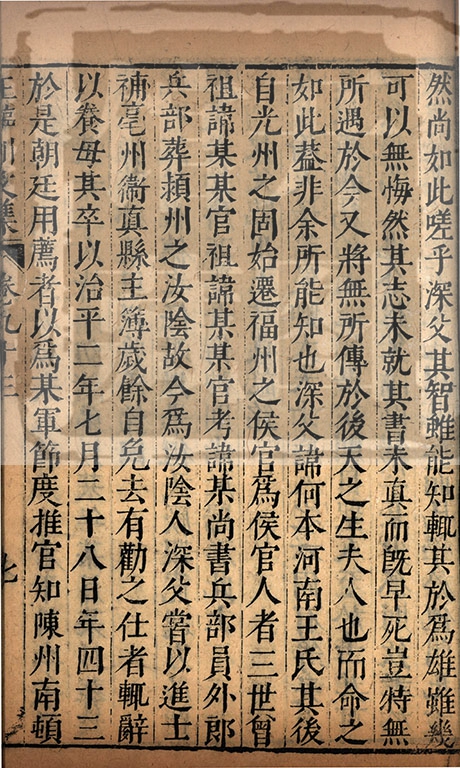 然尚如此嗟乎深父其智雖能知軻其於爲雄雖幾
可以無悔然其志未就其書未具而旣早死豈特無
所遇於今又將無所傳於後天之生夫人也而命之
如此蓋非余所能知也深父諱何本河南王氏其後
自光州之固始遷福州之侯官爲侯官人者三世曾
祖諱某某官祖諱某某官考諱某尚書兵部員外郎
兵部葬潁州之汝陰故今爲汝陰人深父嘗以進士
補亳州衞真縣主簿歲餘自免去有勸之仕者輒辭
以養母其卒以治平二年七月二十八日年四十三
於是朝廷用薦者以爲某軍節度推官知陳州南頓
王臨川文集 卷九十三 七